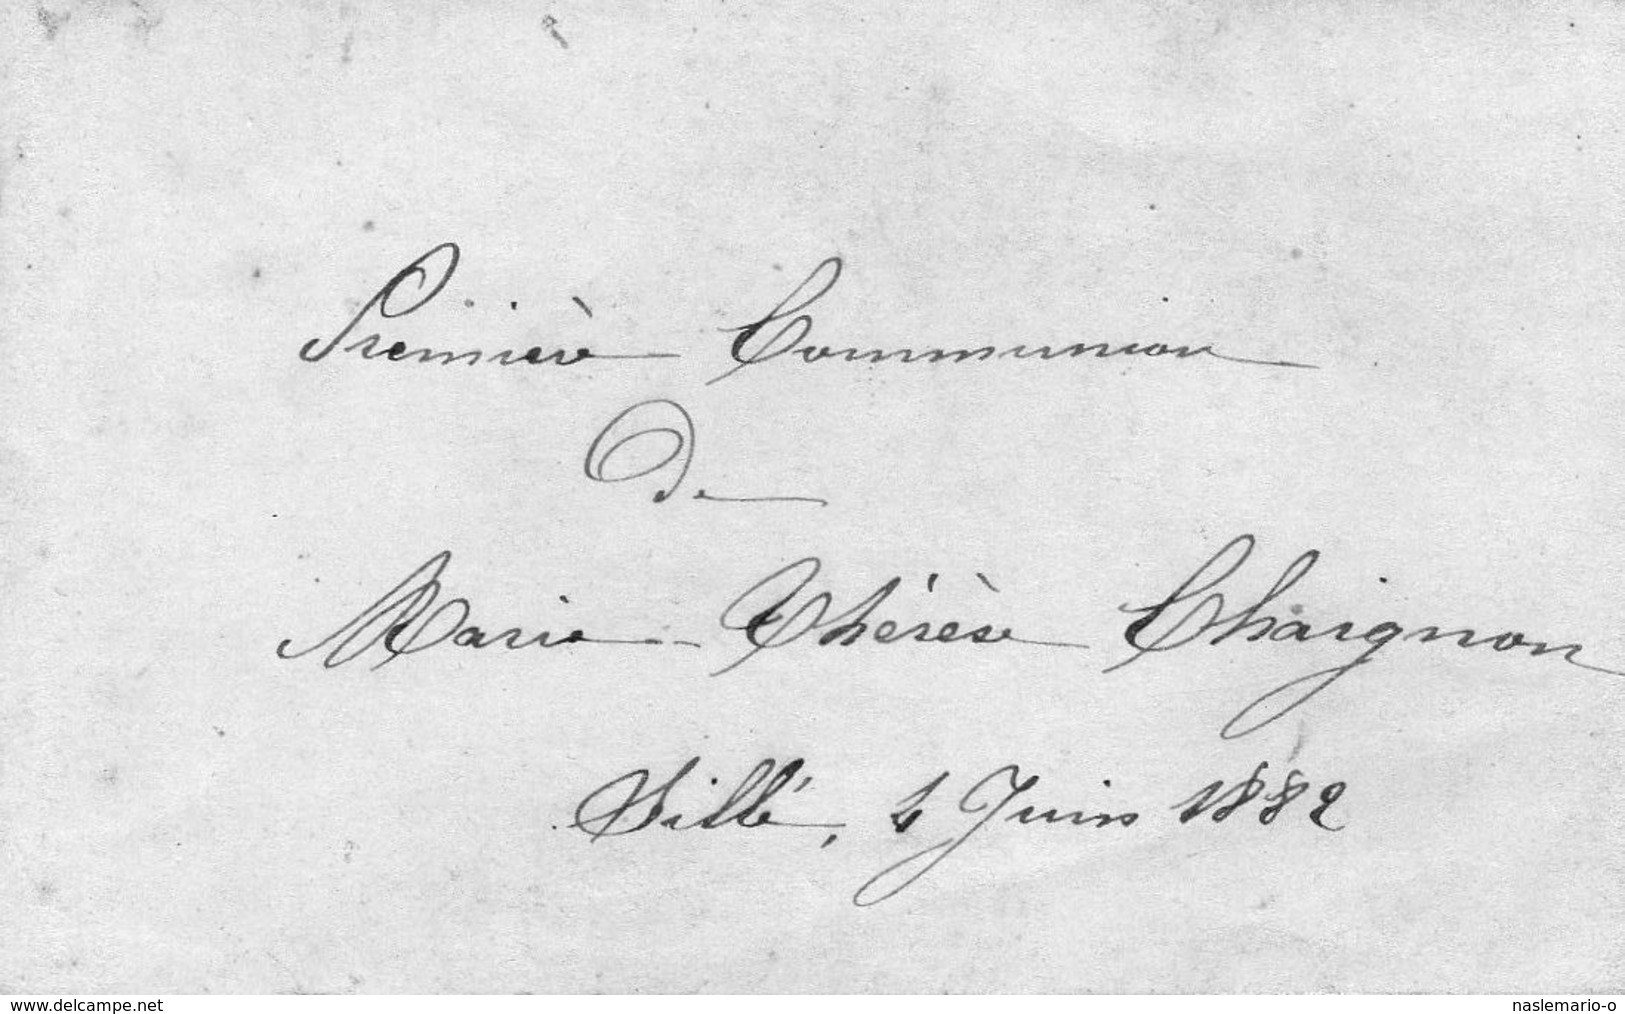 Première Communion
de
Marie Thérèse Chaignon
Sillé, 4 Juin 1882
www.delcampe.net
naslemario-o